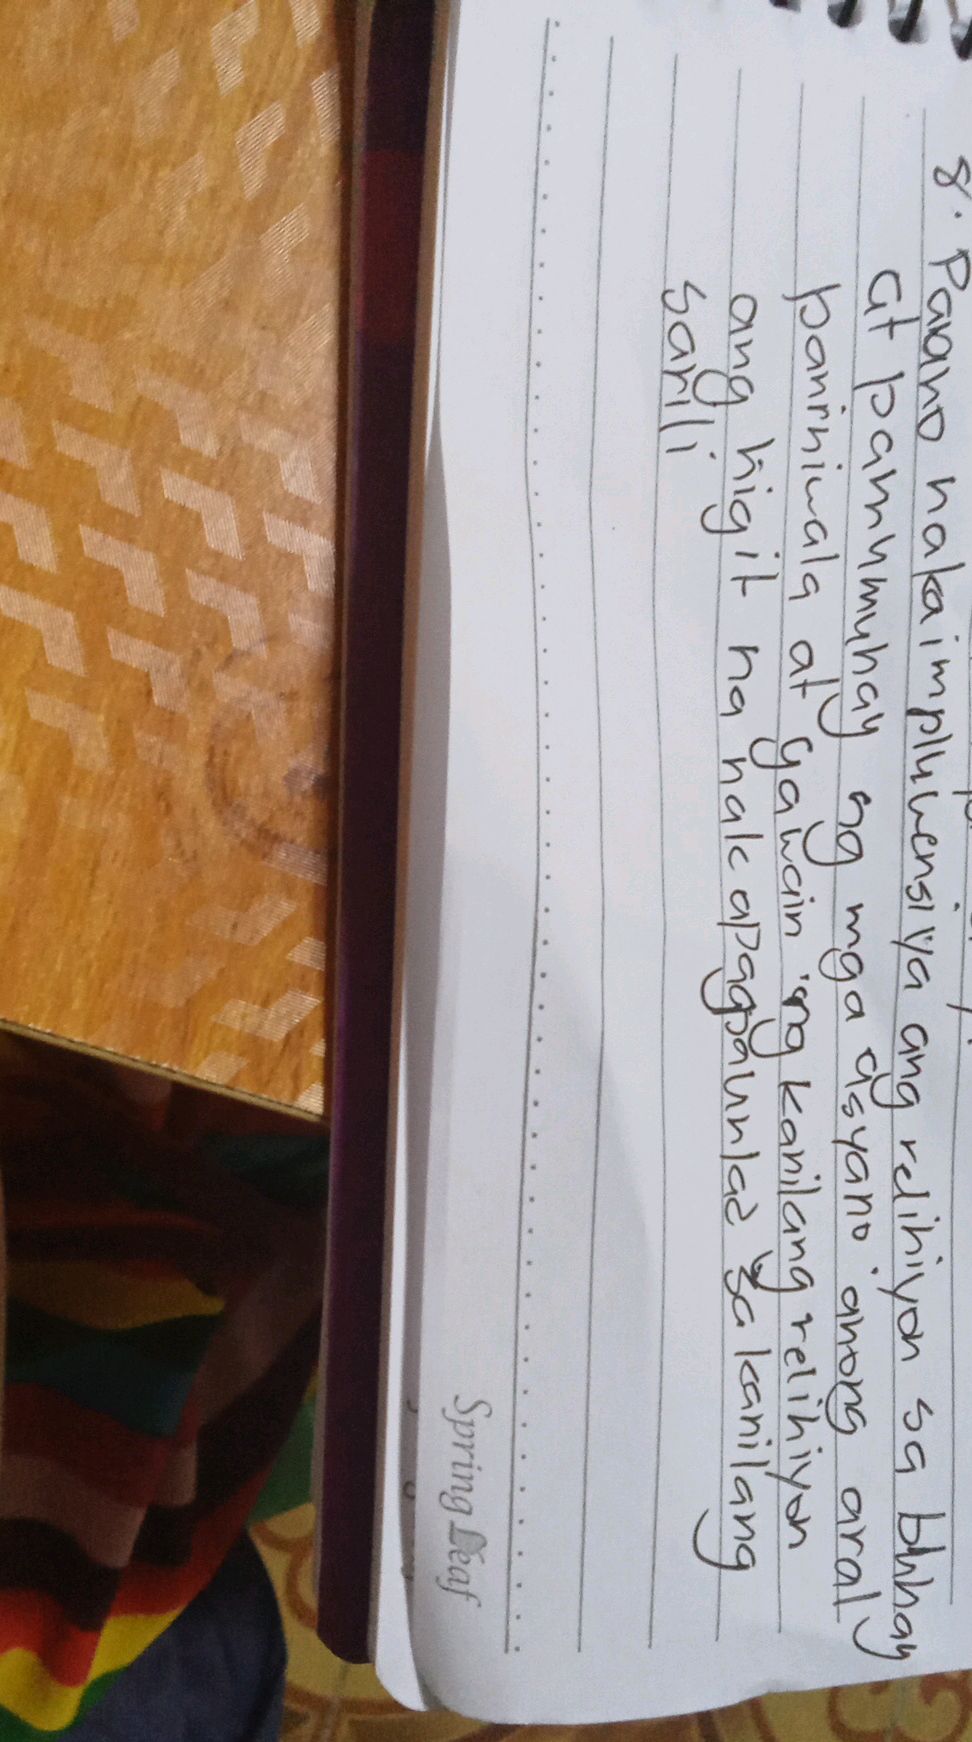 8. Paano nakaimpluwensiya ang relihiyon sa buhay
at pamumuhay ng mga asyano. anong aral,
paniniwala at gawain ng kanilang relihiyon
ang higit na nakapagpaunlad sa kanilang
sarili
Spring Leaf